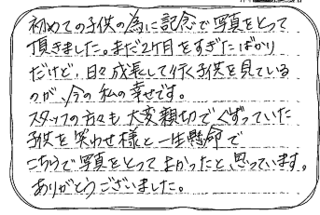 初めての子供の為に記念で写真をとって
頂きました。まだ2ケ月をすぎたばかり
だけど、日々成長して行く子供を見ている
のが、今の私の幸せです。
スタッフの方々も大変親切でぐずっていた
子供を笑わせ様と一生懸命で
こちらで写真をとってよかったと思っています。
ありがとうございました。